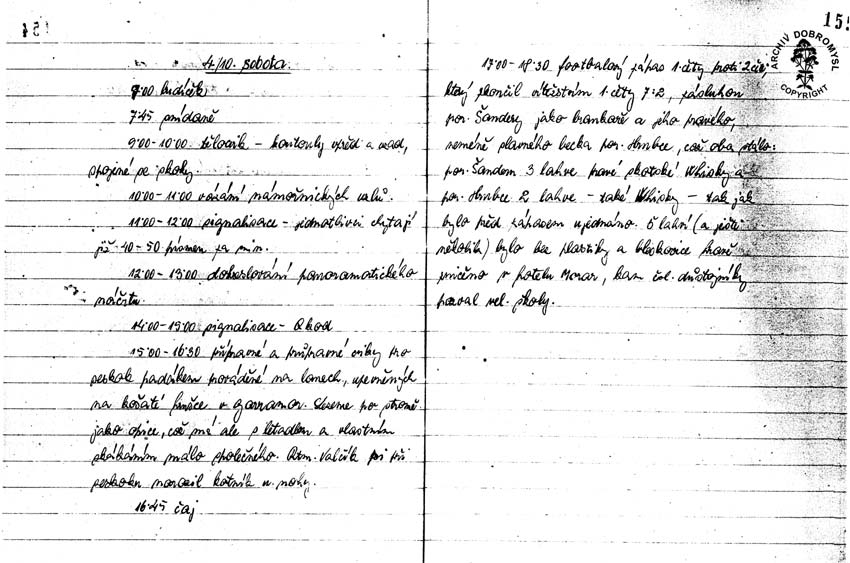 154
4/10. sobota.
7.00 budíček
7.45 snídaně
9.00-10.00 tělocvik - kotouly vpřed a vzad,
spojené se skoky.
10.00-11.00 vázání námořnických uzlů.
11.00-12.00 signalisace - jednotlivci chytají
již 40-50 písmen za min.
12.00-13.00 dokreslování panoramatického
náčrtu.
14.00-15.00 signalisace - Q kod
15.00-16.30 přípravné a průpravné cviky pro
seskok padákem prováděné na lanech, upevněných
na košaté v Garramor. Lezeme po stromě
jako opice, což má ale s letadlem a vlastním
skákáním málo společného. Rtm. Valčík při
seskoku narazil kotník u nohy.
16.45 čaj
155
17.00-18.30 footbalový zápas 1.čety proti 2.če,
který skončil vítězstvím 1.čety 7:2, zásluhou
por. Šandery jako brankaře a jeho pravého,
neméně slavného becka por. Hrubce, což oba stálo:
por. Šanderu 3 lahve pravé skotské Whisky a
por. Hrubce 2 lahve - také Whisky - tak jak
bylo před zápasem ujednáno. 5 lahví (a ještě
několik) bylo bez plastiky a Bickovice právě
zničeno v hotelu Morar, kam čsl. důstojníky
pozval vel. školy.
ARCHIV DOBROMYSL
COPYRIGHT